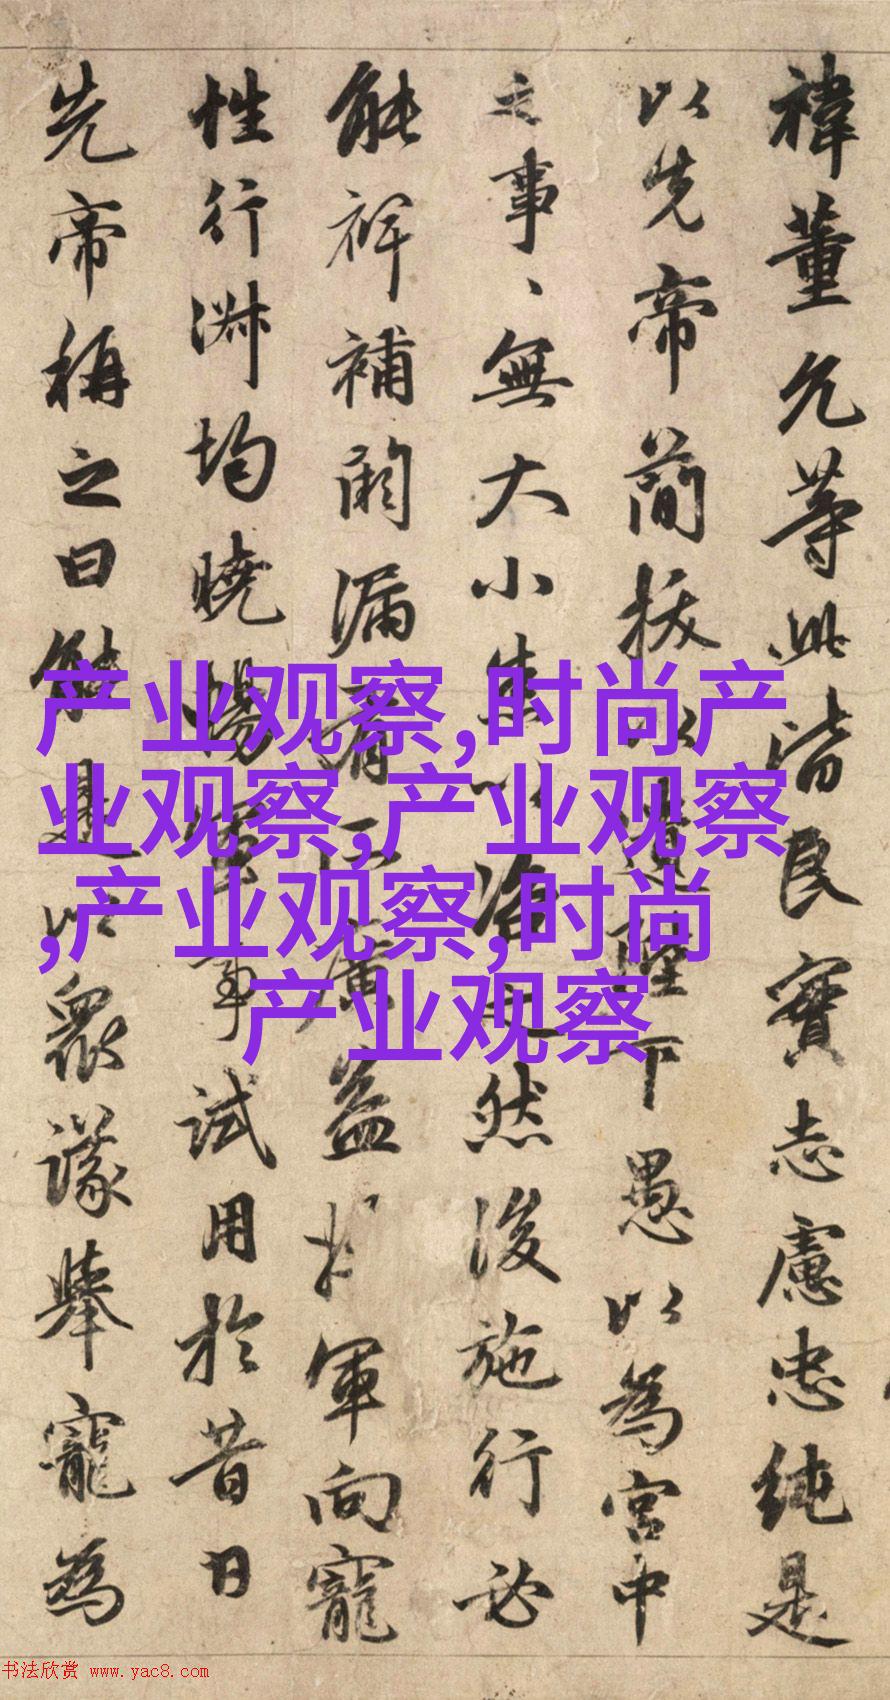 禕董允等此皆良實志慮忠純是
以先帝簡拔以遺陛下愚以為宮中
之事、無大小悉以咨之然後施行必
能裨補闕漏有所廣益將軍向寵
性行淑均曉暢軍事試用於昔日
先帝稱之曰能是以眾議舉寵為
产业观察,时尚产
业观察,产业观察
,产业观察,时尚
产业观察
书法欣赏 www.yac8.com